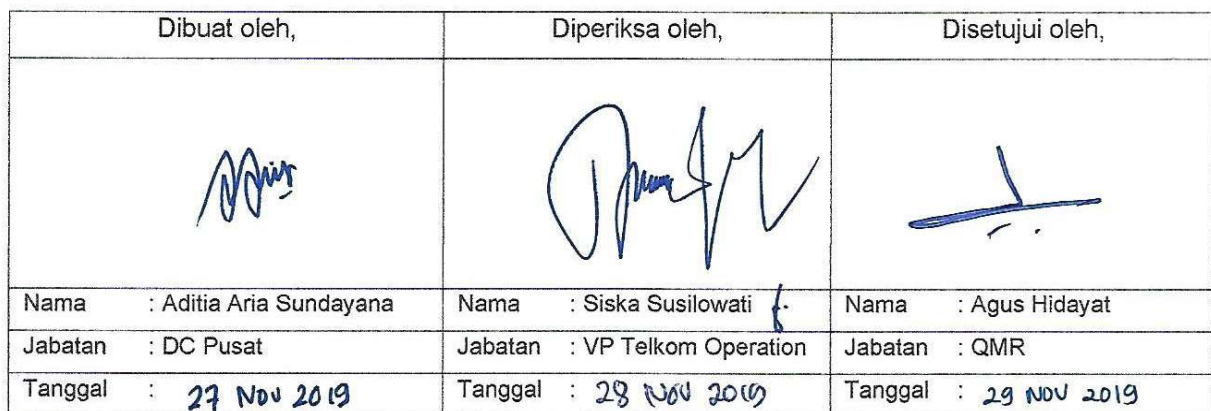 Dibuat oleh, Diperiksa oleh, Disetujui oleh,
Nama : Aditia Aria Sundayana Nama : Siska Susilowati Nama : Agus Hidayat
Jabatan : DC Pusat Jabatan : VP Telkom Operation Jabatan : QMR
Tanggal : 27 Nov 2019 Tanggal : 28 Nov 2019 Tanggal : 29 NOV 2019